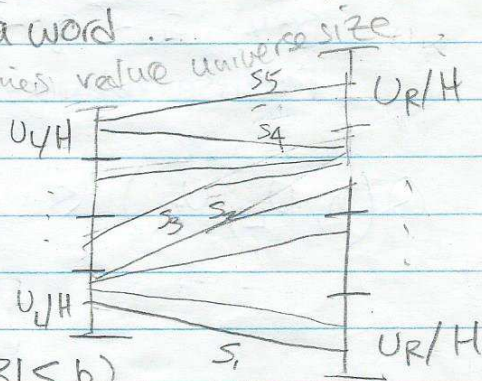 a word ....
value universe size
S5
U_R/H
U_L/H
S4
S3 S2
U_L/H
S1
U_R/H